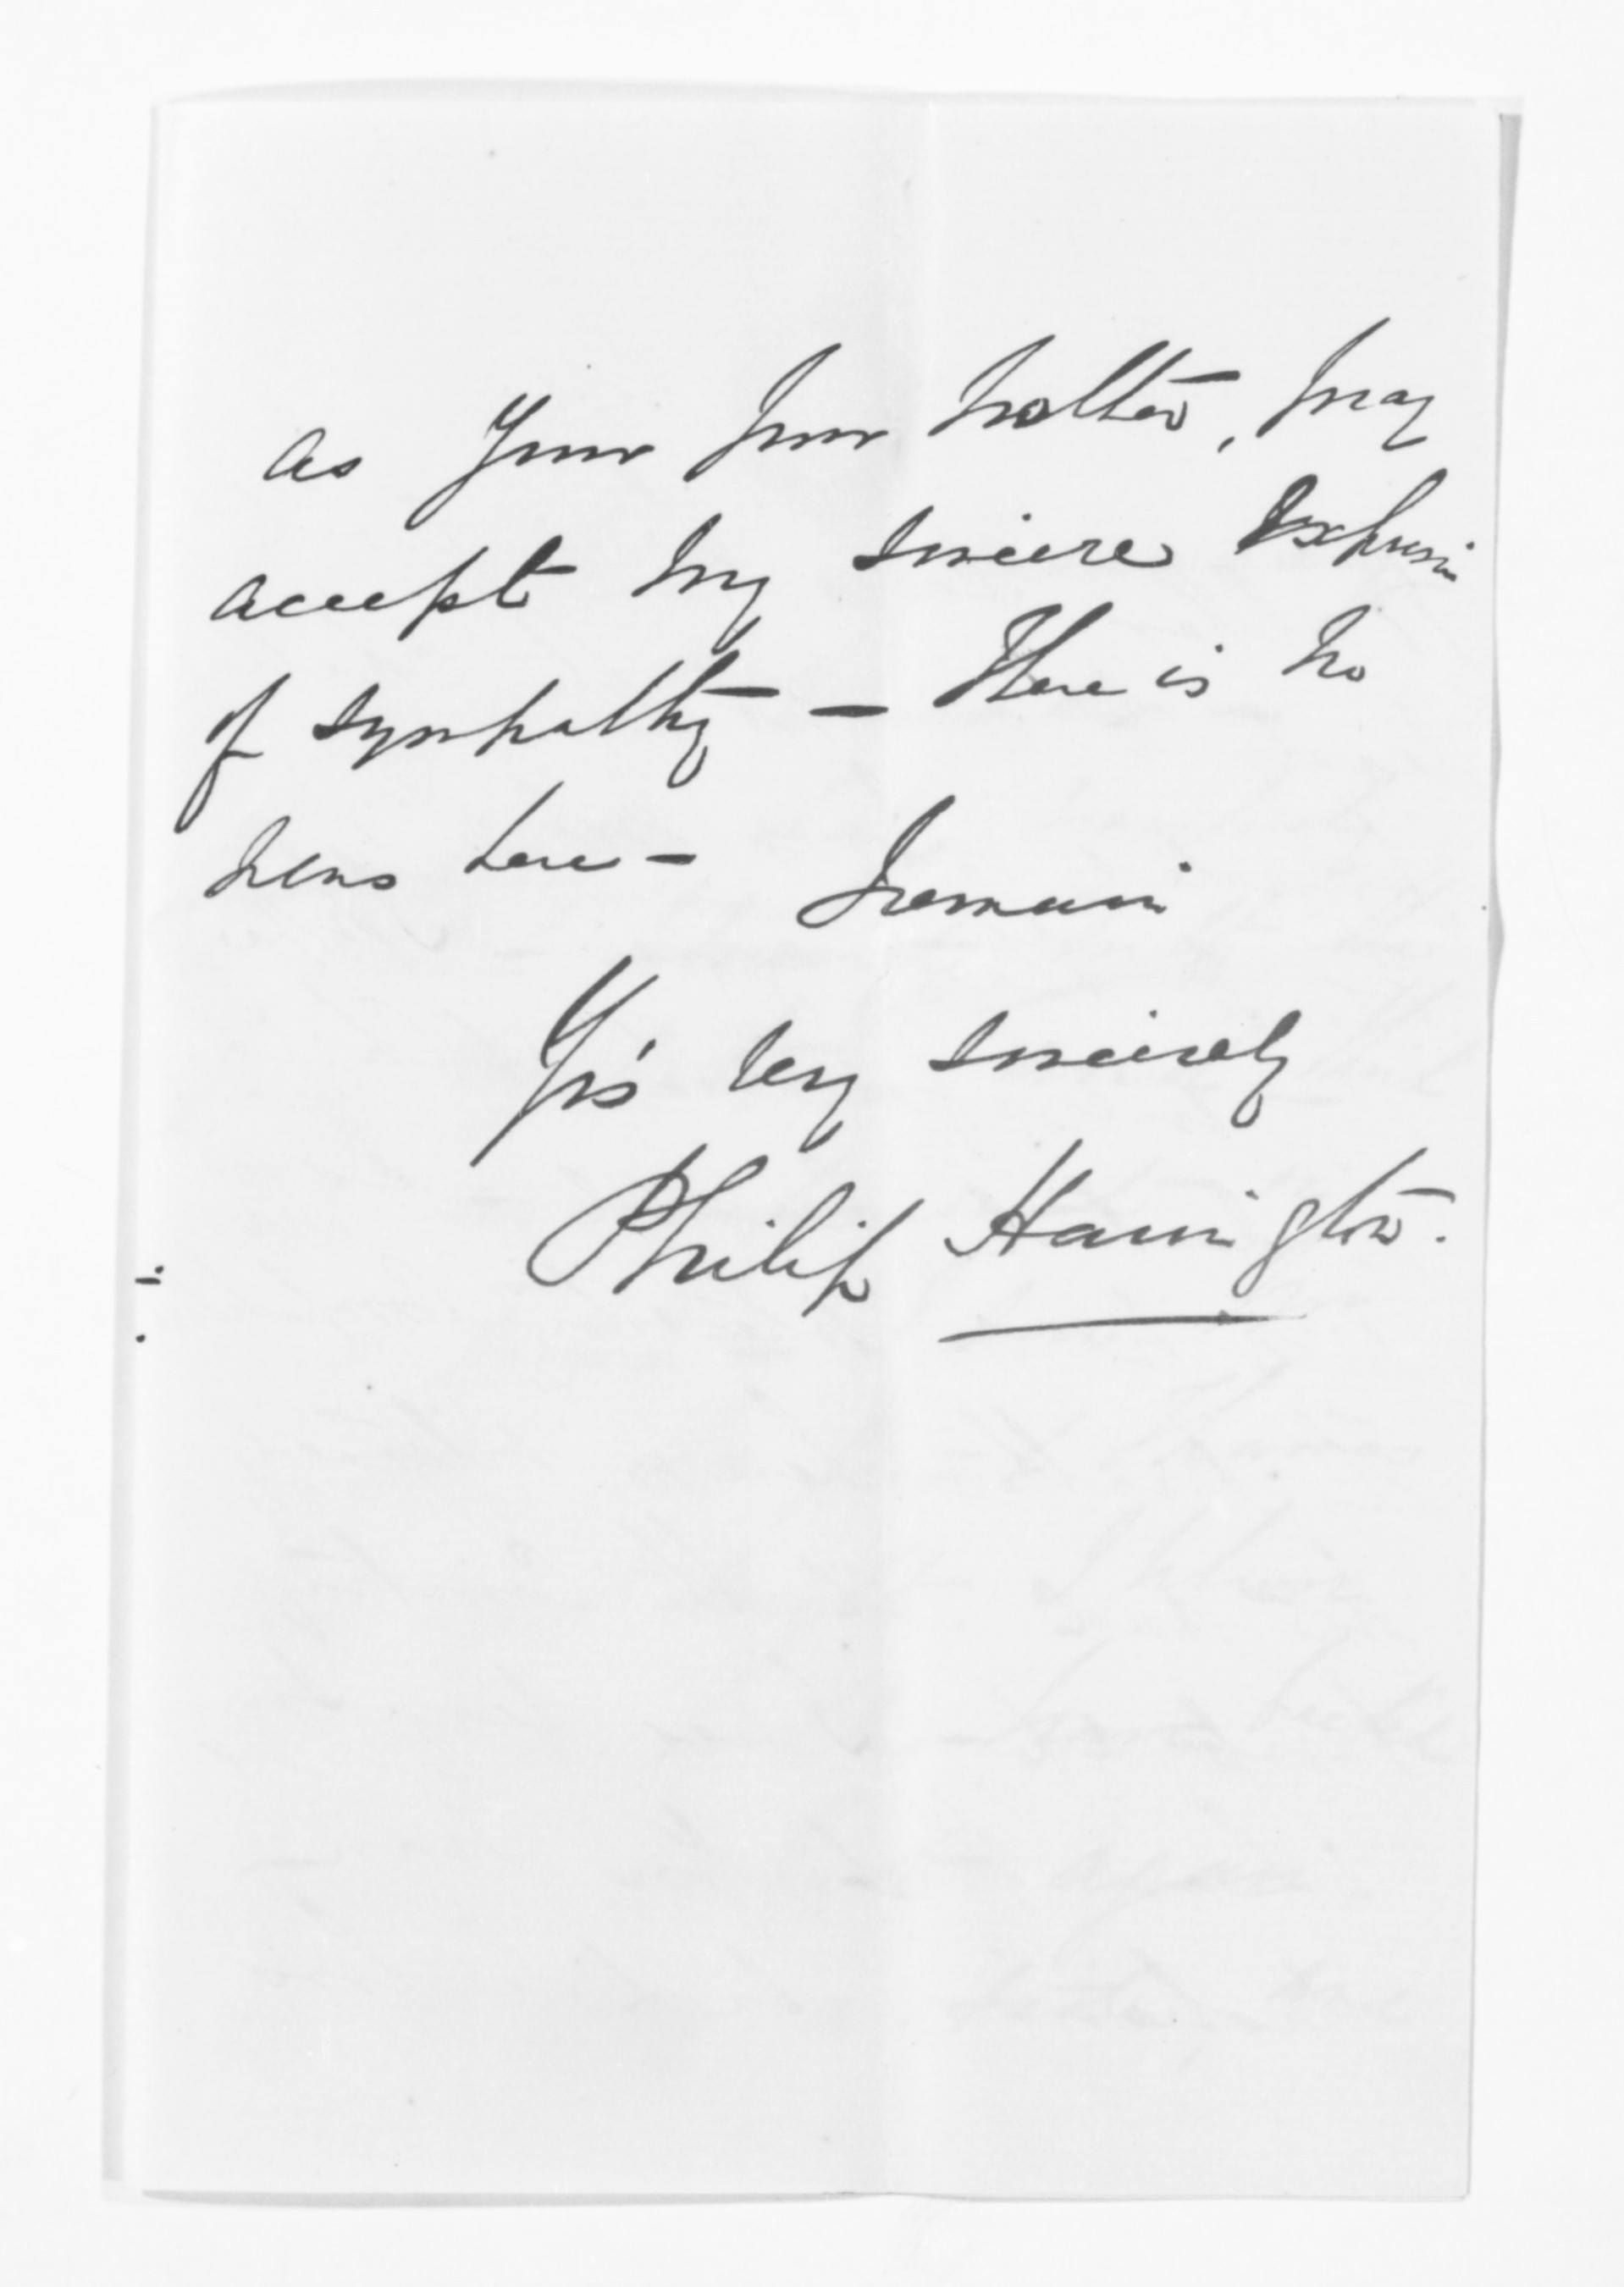 as your poor mother, may
accept my sincere expression
of sympathy — There is no
news here — I remain
Yrs' very sincerely
Philip Harrington.